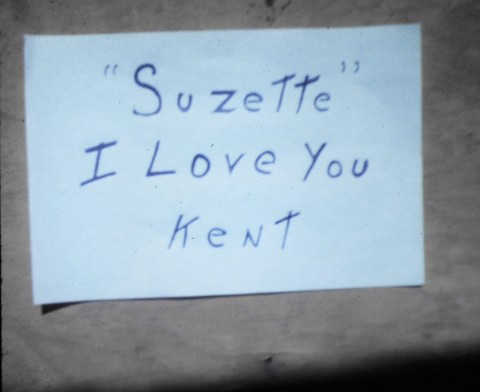 "Suzette"
I Love You
Kent